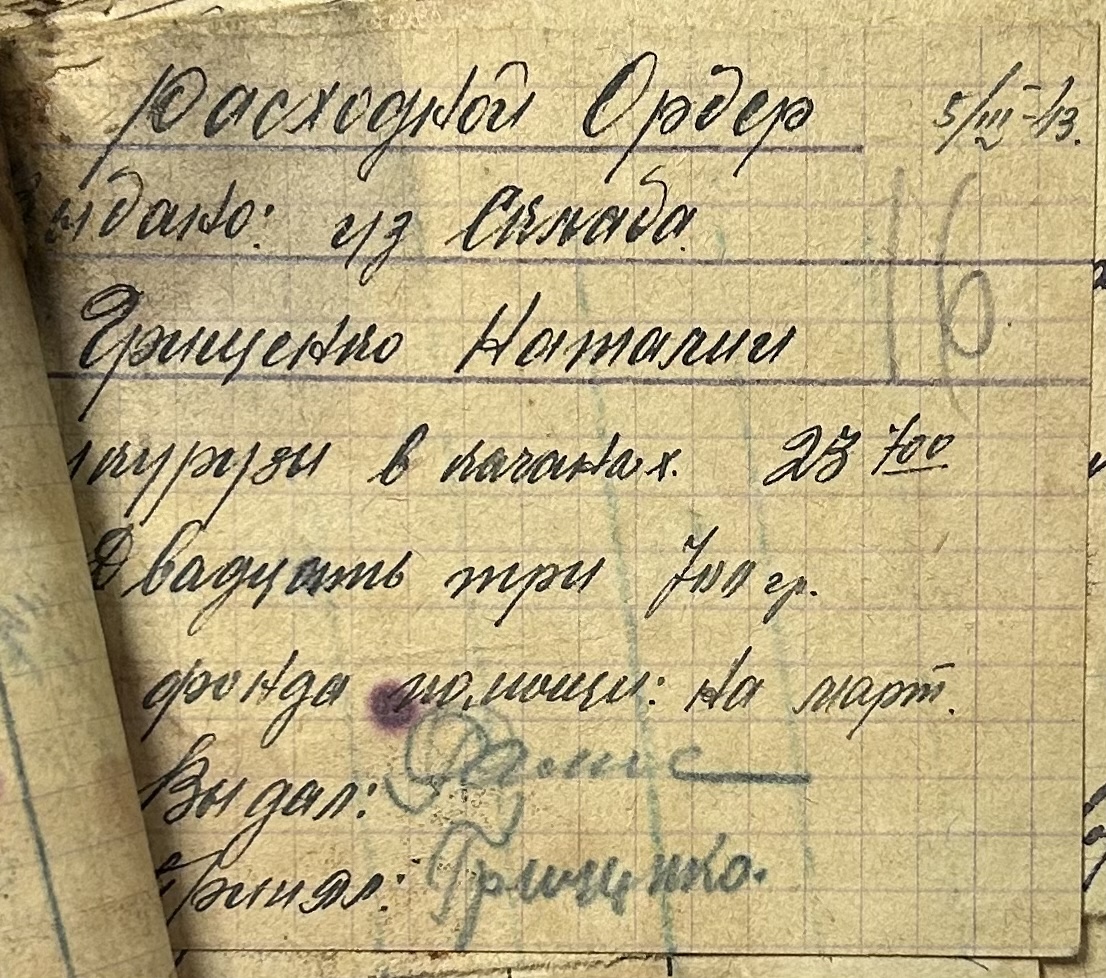 Расходной Ордер 5/III-43.
Выдано: из Склада
16
Грищенко Наталии
курузы в качанах. 23 700
Двадцать три 700 гр.
фонда помощи: на март.
Выдал:
Принял: Грищенко.